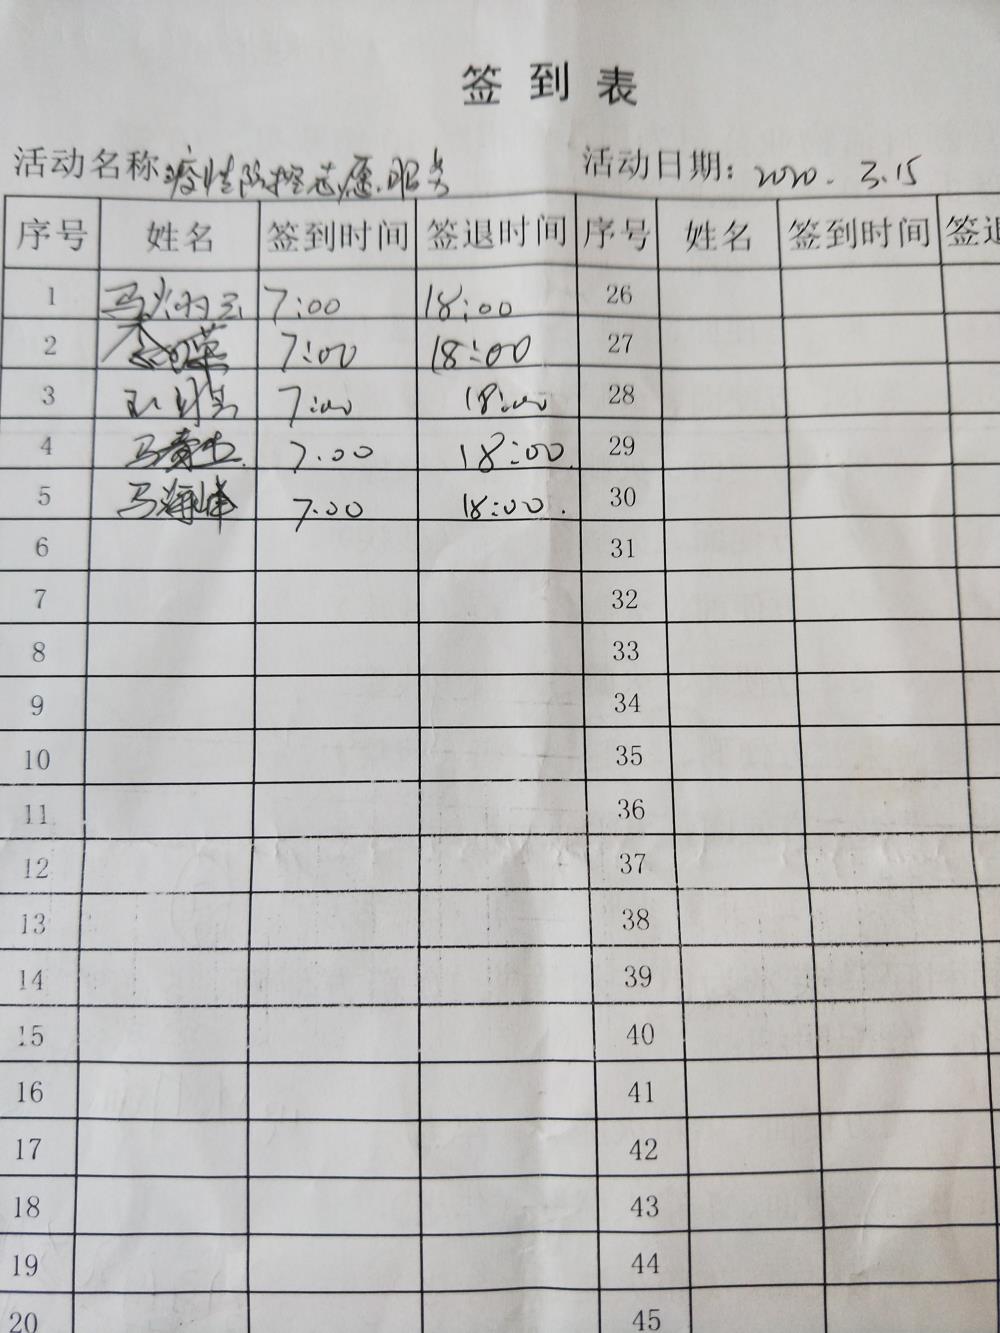 签到表
活动名称 疫情防控志愿服务 活动日期：2020. 3.15
序号 姓名 签到时间 签退时间 序号 姓名 签到时间 签退
1 7:00 18:00 26
2 7:00 18:00 27
3 7:00 18:00 28
4 7:00 18:00 29
5 马海峰 7:00 18:00. 30
6 31
7 32
8 33
9 34
10 35
11 36
12 37
13 38
14 39
15 40
16 41
17 42
18 43
19 44
20 45